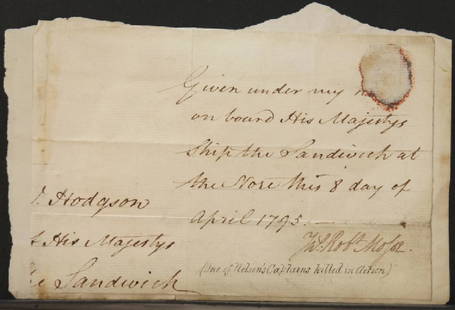 Given under my
on board His Majestys
Ship the Sandwich at
the Nore this 8 day of
April 1795.
Hodgson
His Majestys
Sandwich
Thos. Robt. Mosse
(One of Nelson's Captains killed in Action)